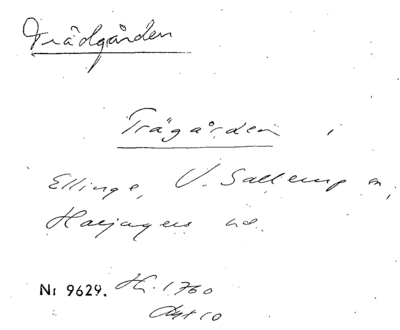 Trädgården
Trägården i
Ellinge, V. Sallerup sn,
Harjagers hd.
Nr 9629. Hi. 1760
Akt 10